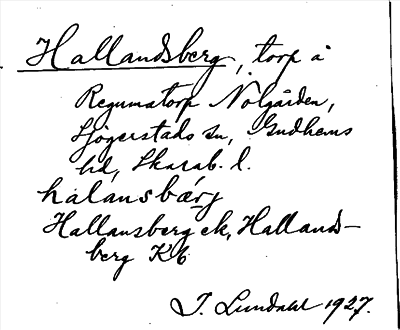 Hallandsberg, torp å
Regumatorp Nolgården,
Sjögerstads sn, Gudhems
hd, Skarab. l.
halansbærj
Hallansberg ek, Halland-
berg KB
J. Lundahl 1927.